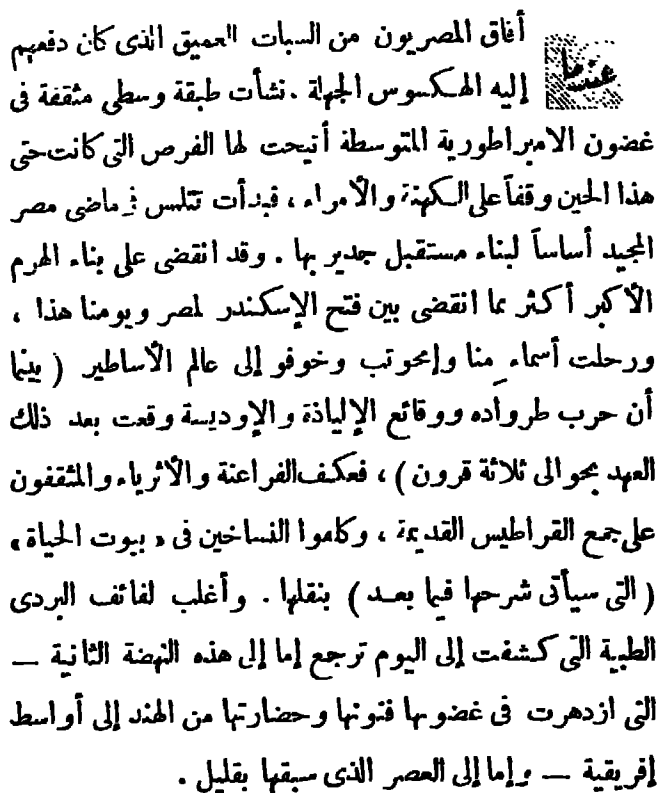 عندما أفاق المصريون من السبات العميق الذى كان دفعهم
إليه الهكسوس الجهلة . نشأت طبقة وسطى مثقفة فى
غضون الامبراطورية المتوسطة أتيحت لها الفرص التى كانت حتى
هذا الحين وقفاً على الكهنة والأمراء ، فبدأت تتلمس فى ماضى مصر
المجيد أساساً لبناء مستقبل جدير بها . وقد انقضى على بناء الهرم
الأكبر أكثر مما انقضى بين فتح الإسكندر لمصر ويومنا هذا ،
ورحلت أسماء منا وإمحوتب وخوفو إلى عالم الأساطير ( بينما
أن حرب طرواده ووقائع الإلياذة والإوديسة وقعت بعد ذلك
العهد بحوالى ثلاثة قرون ) ، فعكف الفراعنة والأثرياء والمثقفون
على جمع القراطيس القديمة ، وكلموا النساخين فى « بيوت الحياة »
( التى سيأتى شرحها فيما بعد ) بنقلها . وأغلب لفائف البردى
الطبية التى كشفت إلى اليوم ترجع إما إلى هذه النهضة الثانية —
التى ازدهرت فى غضونها فنونها وحضارتها من الهند إلى أواسط
إفريقية — وإما إلى العصر الذى سبقها بقليل .